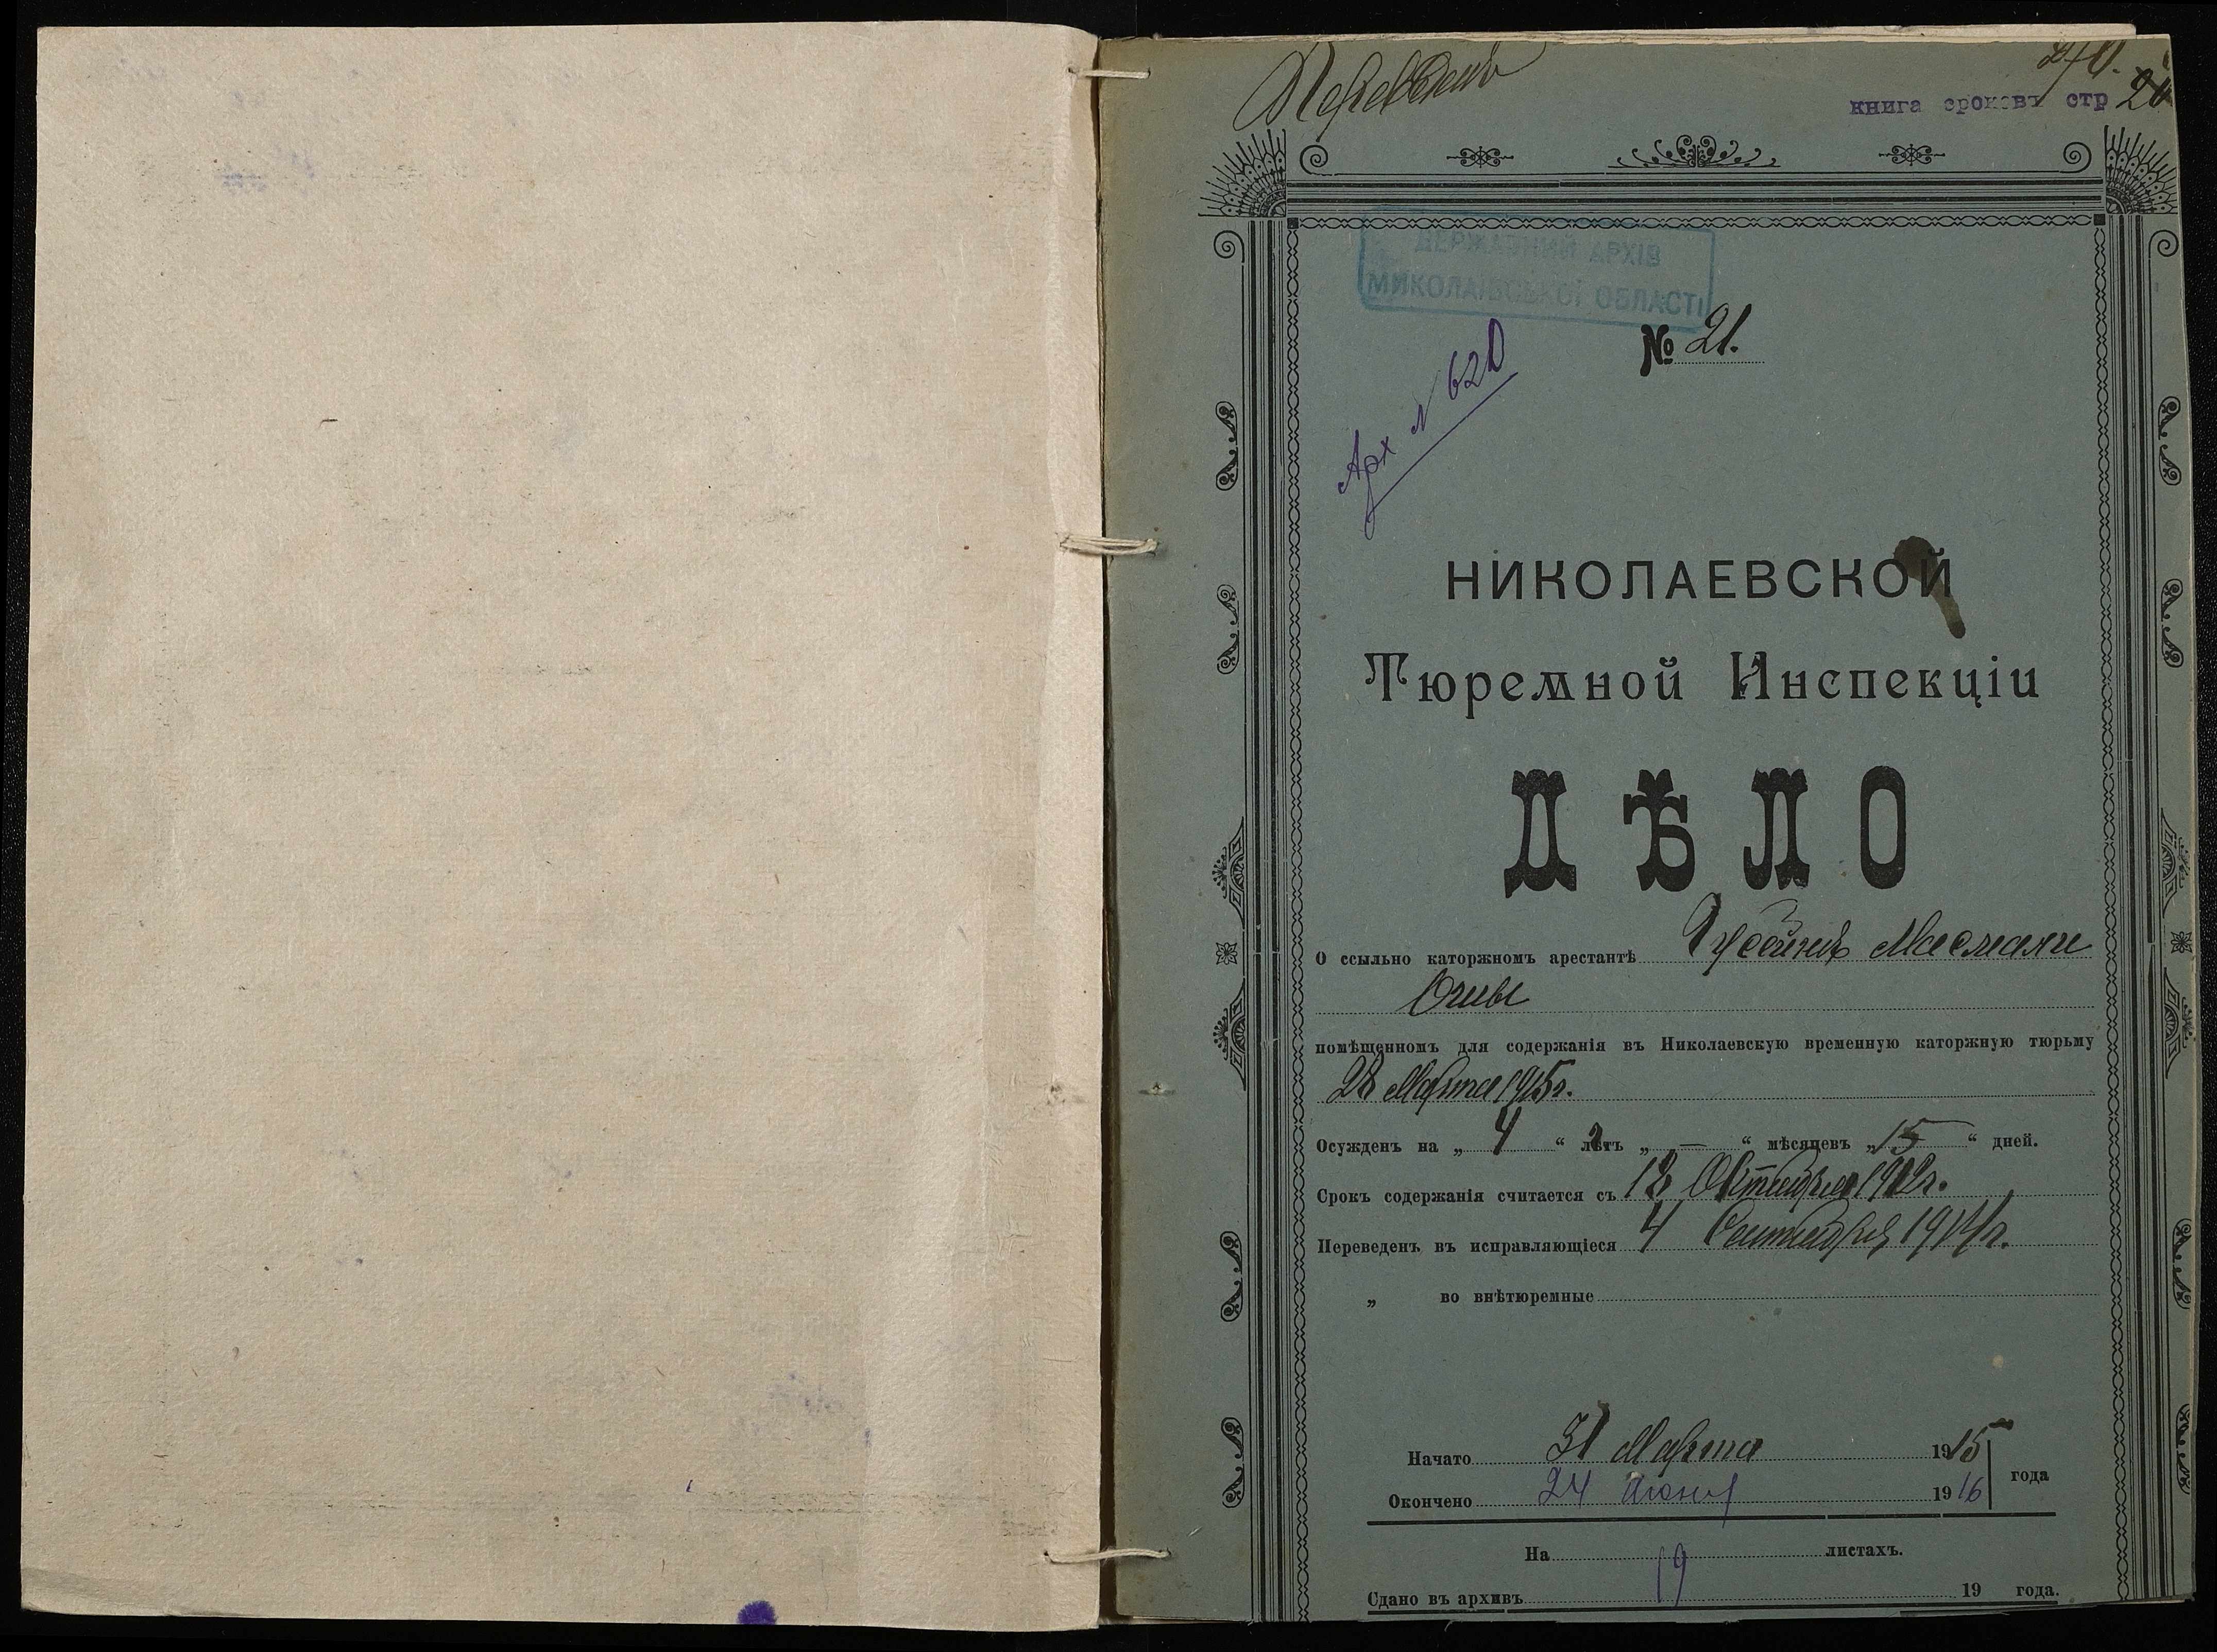 Переведенъ
270.
книга сроковъ стр 20
ДЕРЖАВНИЙ АРХІВ
МИКОЛАЇВСЬКОЇ ОБЛАСТІ
№ 21.
Арх № 620
НИКОЛАЕВСКОЙ
Тюремной Инспекціи
ДѢЛО
О ссыльно каторжномъ арестантѣ Гусейнъ Масмали
Оглы
помѣщенномъ для содержанія въ Николаевскую временную каторжную тюрьму
28 Марта 1915 г.
Осужденъ на „ 4 “ лѣтъ „ — “ мѣсяцевъ „ 15 “ дней.
Срокъ содержанія считается съ 12 Октября 1912 г.
Переведенъ въ исправляющіеся 4 Сентября 1914 г.
„ во внѣтюремные
Начато 31 Марта 1915
года
Окончено 24 июня 1916
На 19 листахъ.
Сдано въ архивъ 19 года.